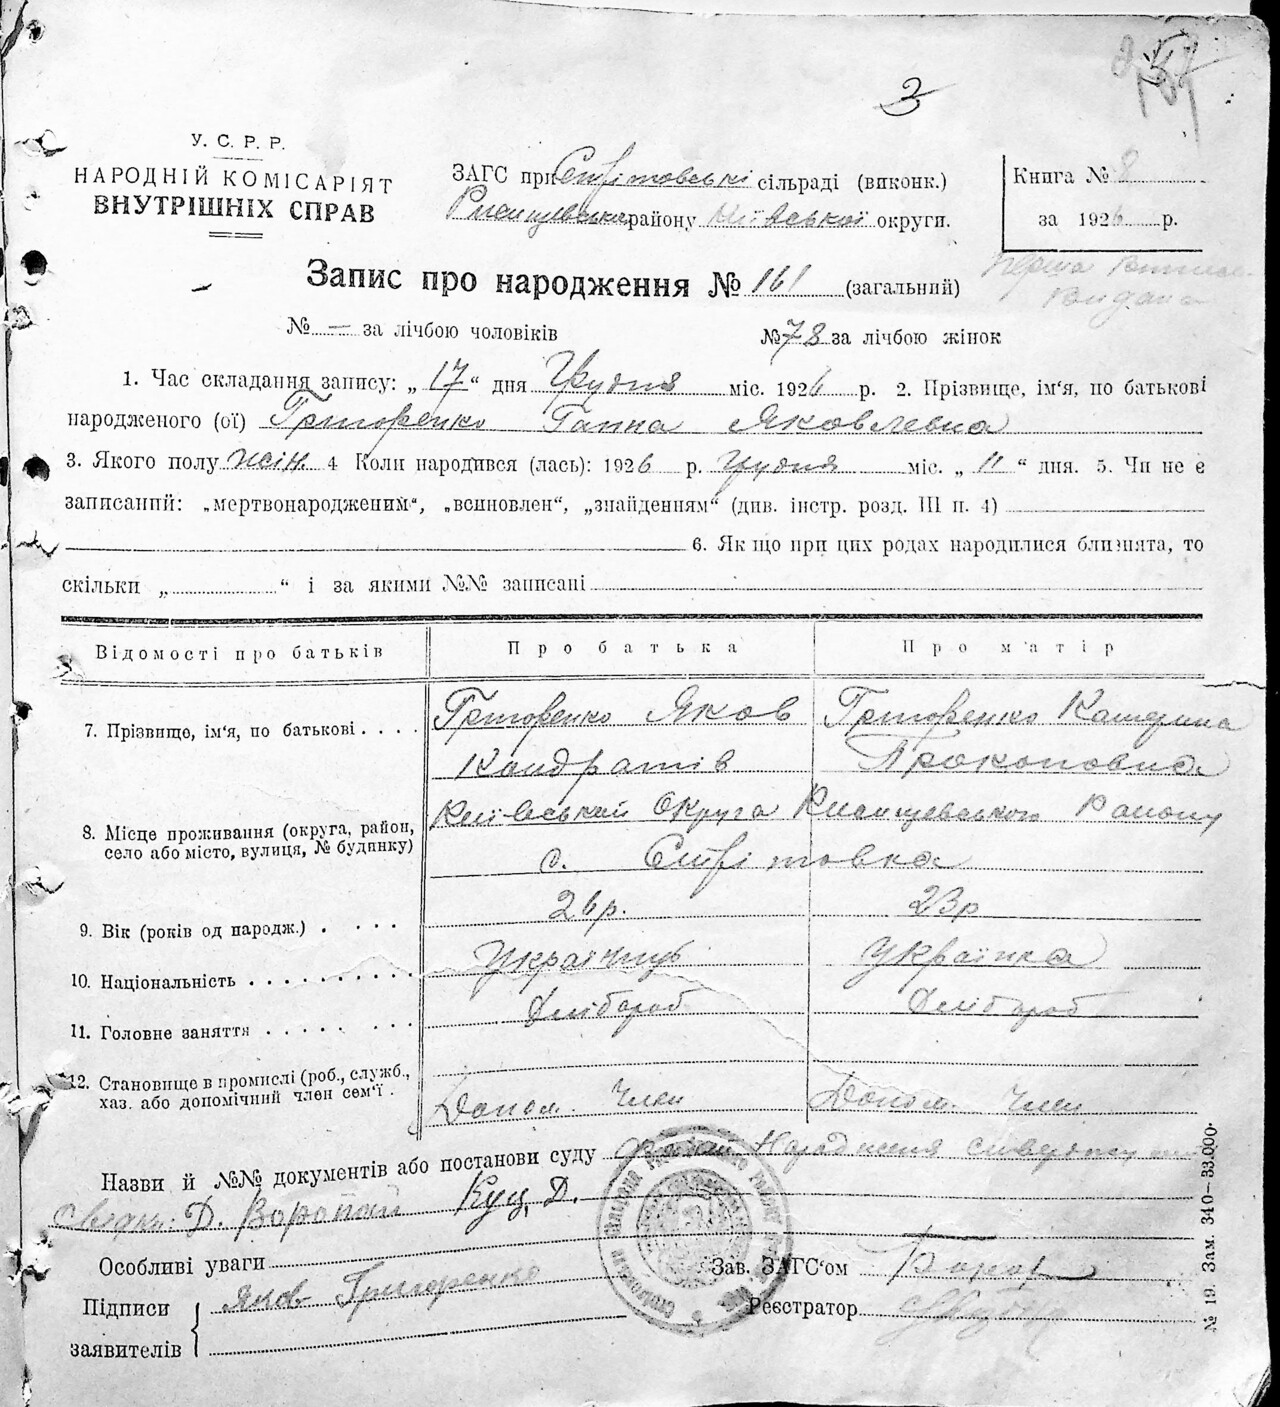 3
У. С. Р. Р.
НАРОДНІЙ КОМІСАРІЯТ
ВНУТРІШНІХ СПРАВ
ЗАГС при сільраді (виконк.)
району Київської округи.
Книга № 8
за 1926 р.
Запис про народження № 161 (загальний)
№ — за лічбою чоловіків № 78 за лічбою жінок
1. Час складання запису: „ 17 “ дня Грудня міс. 1926 р. 2. Прізвище, ім‘я, по батькові
народженого (ої) Григоренко Ганна Яковлевна
3. Якого полу жін. 4 Коли народився (лась): 1926 р. Грудня міс. „ 11 “ дня. 5. Чи не є
записаний: „мертвонародженим“, „всиновлен“, „знайденням“ (див. інстр. розд. III п. 4)
6. Як що при цих родах народилися близнята, то
скільки „ “ і за якими №№ записані
Відомості про батьків Про батька Про матір
7. Прізвище, ім‘я, по батькові . . . . Григоренко Яков Григоренко Катерина
Кондратів Прокоповна
8. Місце проживання (округа, район, село або місто, вулиця, № будинку) Київський Округа Району
с.
9. Вік (років од народж.) . . . . 26 р. 23 р
10. Національність . . . . . . . . . . Українець Українка
11. Головне заняття . . . . . . . . Хлібороб Хлібороб
12. Становище в промислі (роб., служб., хаз. або допомічний член сем‘ї . Допом. Член Допом. Член
Назви й №№ документів або постанови суду
Д. Воропай Куц, Д.
Особливі уваги
Зав. ЗАГС‘ом
Підписи Яков Григоренко
Реєстратор
заявителів
№ 19. Зам. 340—33.000.